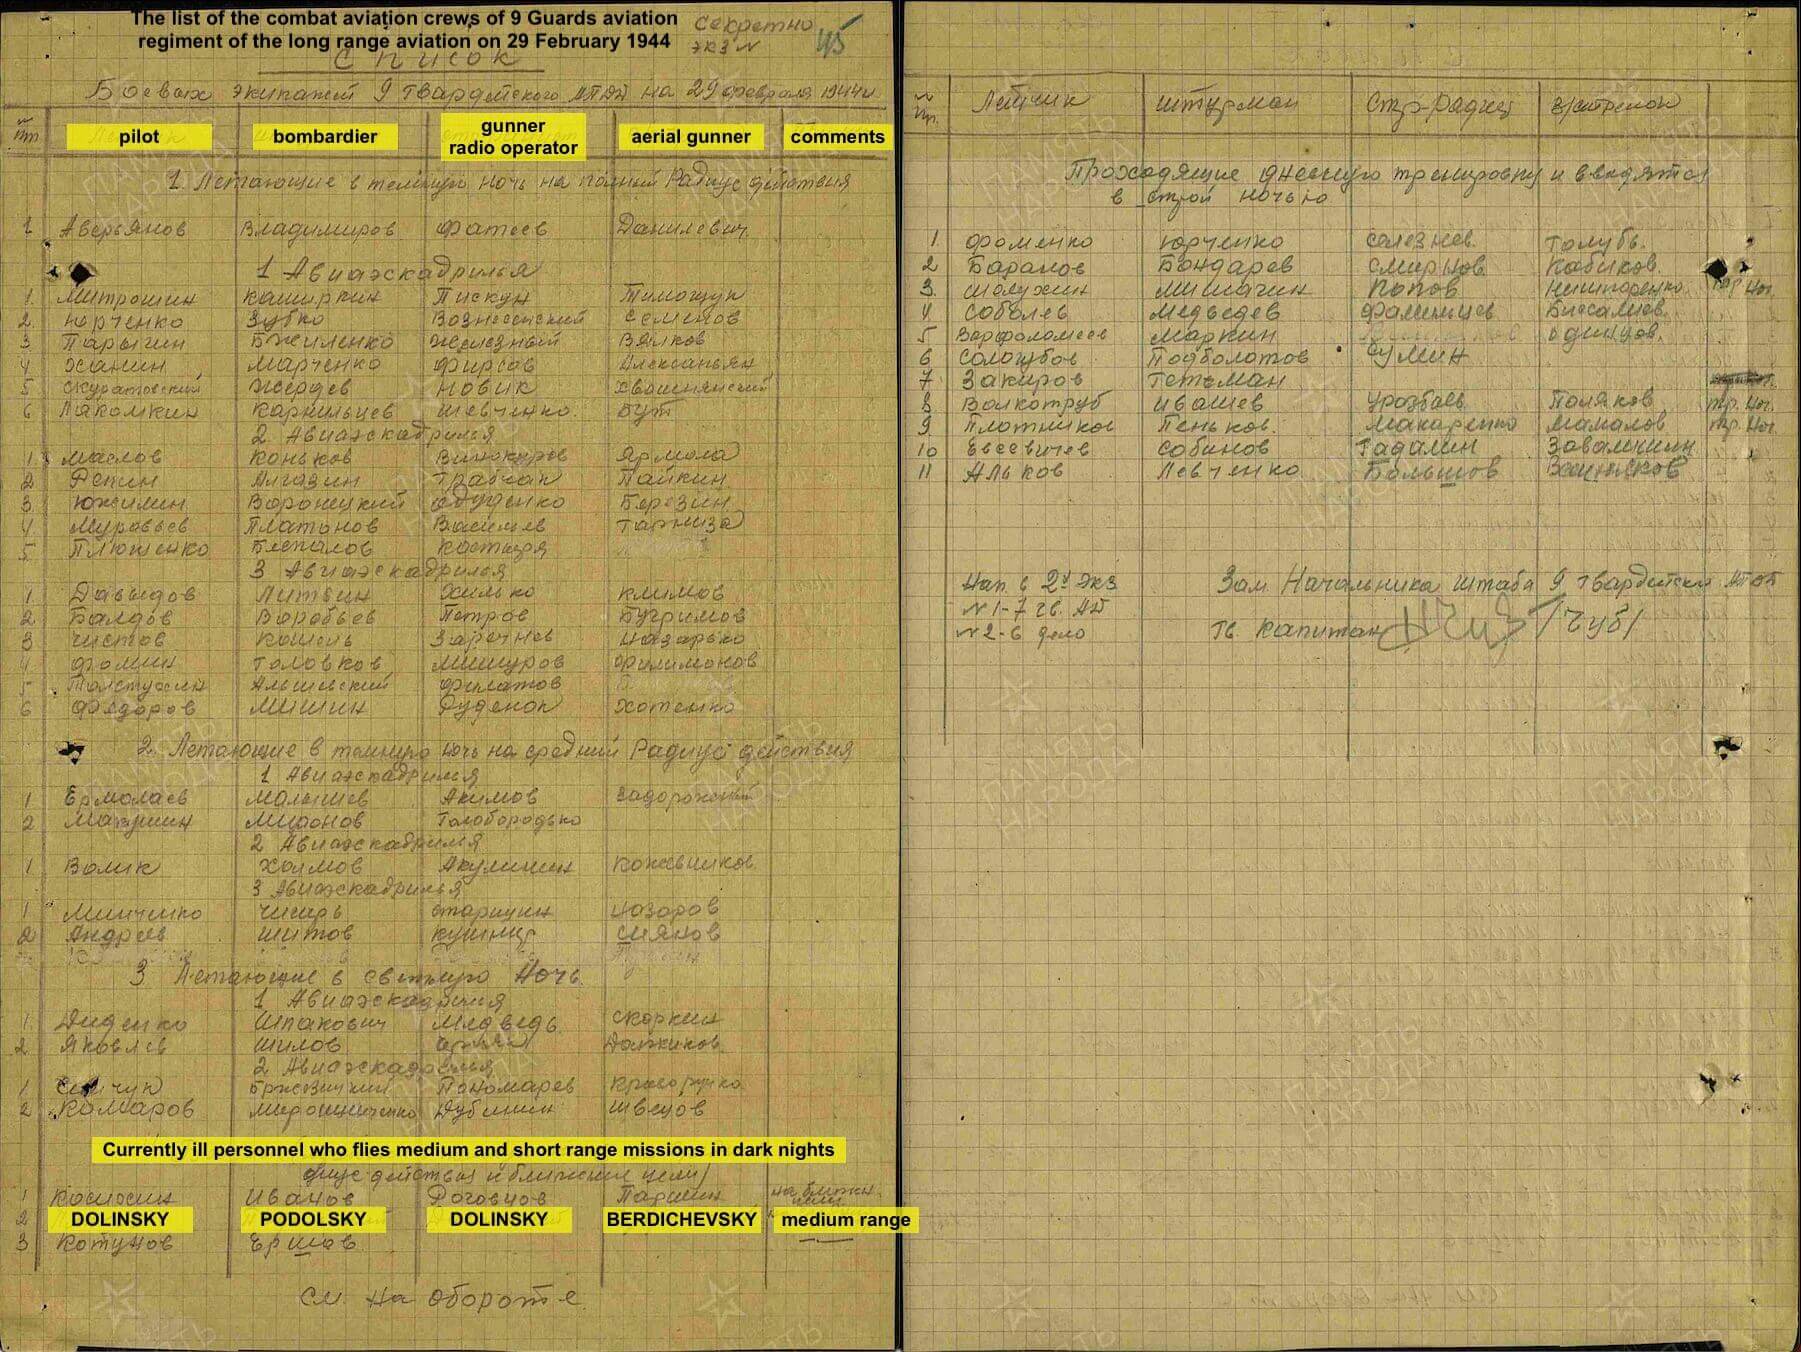 The list of the combat aviation crews of 9 Guards aviation
regiment of the long range aviation on 29 February 1944
Секретно
экз N
45
Список
Боевых экипажей 9 гвардейского АПДД на 29 февраля 1944г
№ пп pilot bombardier gunner radio operator aerial gunner comments
1. Летающие в темную ночь на полный радиус действия
1 Аверьянов Владимиров Фатеев Данилевич
1 Авиаэскадрилья
1. Митрошин Каширкин Пискун Тимощук
2. Юрченко Зубко Вознесенский Семенов
3 Парыгин Бжиленко Железный Вялков
4 Ханин Марченко Фирсов Алексаньян
5 Скуратовский Жердев Новик Хвошнянский
6 Лакомкин Карпильцев Шевченко. Бут
2. Авиаэскадрилья
1 Маслов Коньков Винокуров Ярмола
2 Репин Алгазин Грабчак Пайкин
3 Южилин Воронецкий Березин
4 Муравьев Платонов Васильев
5 Плющенко Беспалов
3 Авиаэскадрилья
1 Давыдов Литвин Хилько Климов
2 Балдов Воробьев Петров Бугримов
3 Чистов Кошель Заречнев Назарько
4 Фомин Головков Мишуров Филимонов
5 Толстухин Альшевский Филатов
6 Федоров Мишин Руденок Хотенко
2 Летающие в темную ночь на средний радиус действия
1 Авиаэскадрилья
1 Ермолаев Малышев Акимов Задорожный
2 Миронов Голобородько
2 Авиаэскадрилья
1 Волик Холмов Акулинин Кожевников
3 Авиаэскадрилья
1 Минченко Чигирь Старицин Назаров
2 Андреев Шитов Кушнир Сиянов
3 Летающие в светлую ночь.
1 Авиаэскадрилья
1. Диденко Шпакович Медведь Скоркин
2 Яковлев Шилов Должиков
2 Авиаэскадрилья
1 Бржезицкий Пономарев Криворучко
2 Комаров Мирошниченко Дубинин Швецов
Currently ill personnel who flies medium and short range missions in dark nights
действия и ближние цели)
1 Иванов Роговцов Паршин на ближн. цели
2 DOLINSKY PODOLSKY DOLINSKY BERDICHEVSKY medium range
3 Котунов Ершов
См. на обороте
№ пп. Летчик Штурман Стр-радист В/стрелок
Проходящие дневную тренировку и вводятся
в строй ночью
1. Фоменко Юрченко Селезнев. Голубь.
2 Баранов Бондарев Смирнов Кобиков.
3. Шолухин Мишагин Попов Нишпоренко тр. ноч.
4 Соболев Медведев Фалинцев
5 Варфоломеев Маркин Одинцов.
6 Сологубов Подболотов Сумин
7 Закиров Гетьман
8 Волкотруб Ивашев Уразбаев Поляков тр. ноч.
9. Плотников Пеньков. Макаренко Мамалов тр. ноч
10 Евсевичев Собинов Гадалин Завалихин
11 Альков Левченко Большов
Нап. в 2х экз Зам. Начальника штаба 9 гвардейск АПДД
N1-7 гв. АД
N2-в дело Гв. капитан /Чуб/
ПАМЯТЬ НАРОДА